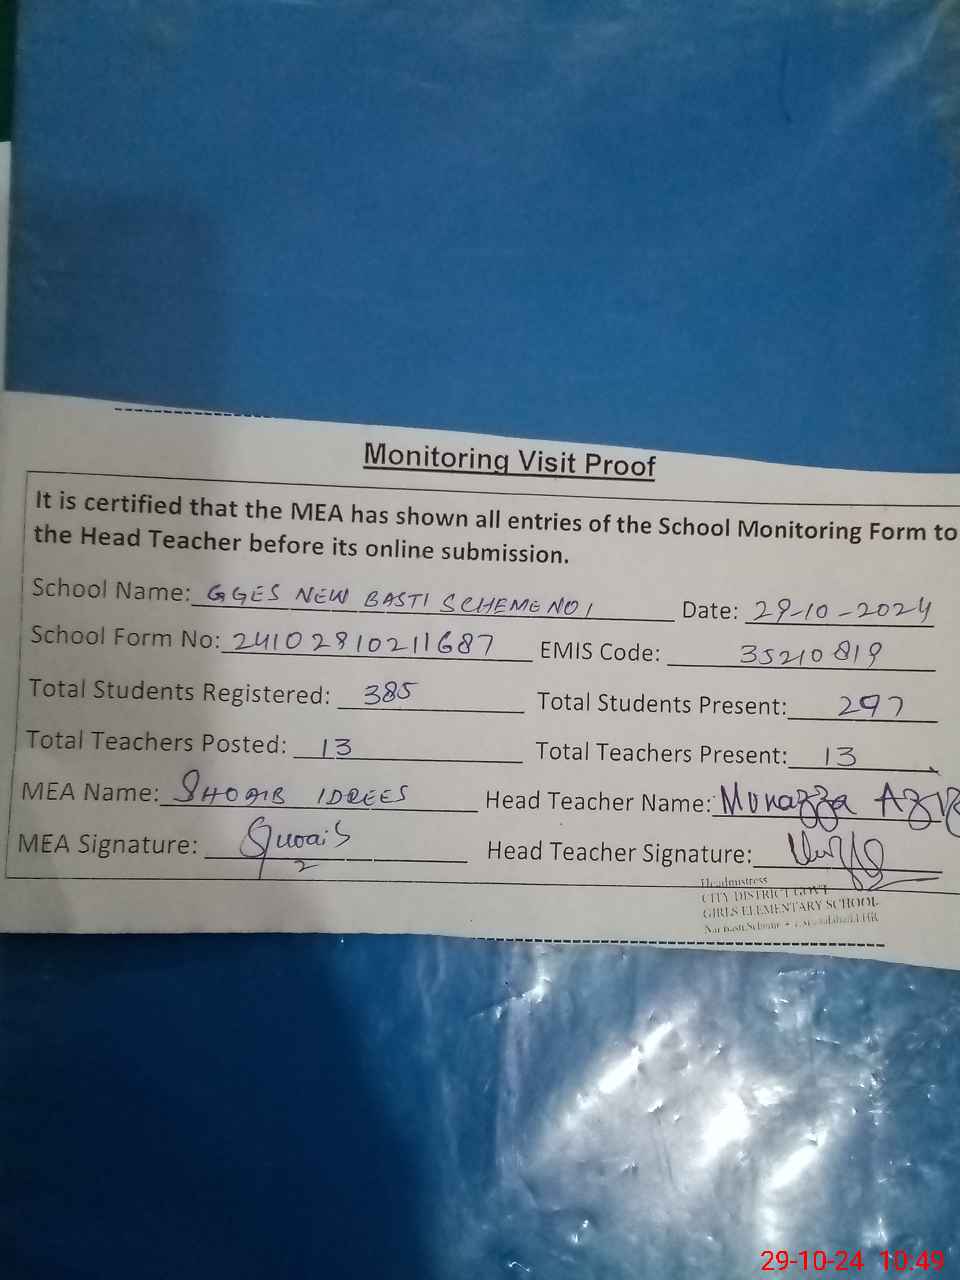 Monitoring Visit Proof
It is certified that the MEA has shown all entries of the School Monitoring Form to
the Head Teacher before its online submission.
School Name: GGES NEW BASTI SCHEME NO 1 Date: 29-10-2024
School Form No: 24102910211687 EMIS Code: 35210819
Total Students Registered: 385 Total Students Present: 297
Total Teachers Posted: 13 Total Teachers Present: 13
MEA Name: SHOAIB IDREES Head Teacher Name: Munazza
MEA Signature: Shoaib Head Teacher Signature:
Headmistress
CITY DISTRICT GOVT
GIRLS ELEMENTARY SCHOOL
29-10-24 10:49